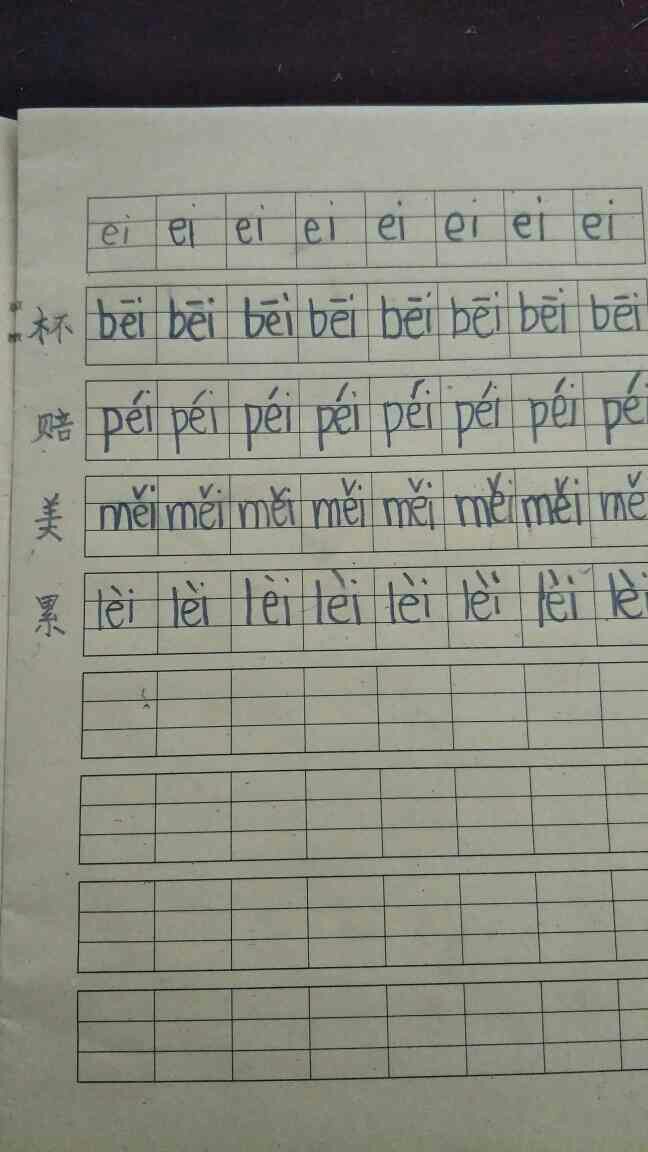 ei ei ei ei ei ei ei ei
杯 bēi bēi bēi bēi bēi bēi bēi bēi
赔 péi péi péi péi péi péi péi pé
美 měi měi měi měi měi měi měi mě
累 lèi lèi lèi lèi lèi lèi lèi lè